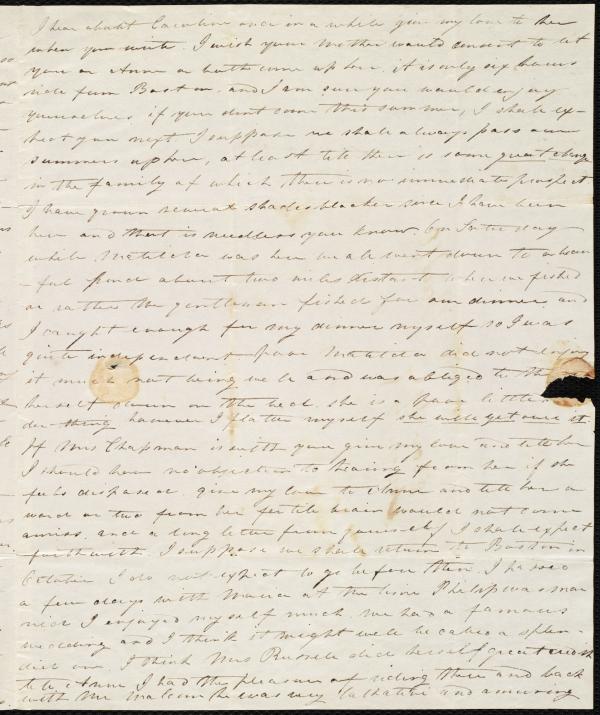 I hear about Caroline once in a while give my love to her
when you write. I wish your Mother would consent to let
you or Anne or both come up here. it is only six hours
ride from Boston. and I am sure you would enjoy
yourselves. if you dont come this summer, I shall ex-
pect you next. I suppose we shall always pass our
summers up here, at least till there is some great change
in the family of which there is no immediate prospect
I have grown several shades blacker since I have been
here and that is needless you know. on Saturday
while Matilda was here we all went down to a beau
-ful pond about two miles distant where we fished
or rather the gentlemen fished for our dinner, and
I caught enough for my dinner myself so I was
quite independent poor Matilda did not enjoy
it much not being well and was obliged to
herself down on the bed. she is a poor little
der thing however I flatter myself she will get over it.
If Mrs Chapman is with you give my love and tell her
I should have no objection to hearing from her if she
feels disposed. give my love to Anne and tell her a
word or two from her fertile brain would not come
amiss. and a long letter from yourself I shall expect
forthwith. I suppose we shall return to Boston in
October I do not expect to go before then. I passed
a few days with Maria at the time Philip was mar
ried I enjoyed myself much. we had a famous
wedding and I think it might well be called a splen-
did one. I think Mrs Russell did herself great credit
tell Anne I had the pleasure of riding there and back
with Mr Malcom he was very and amusing